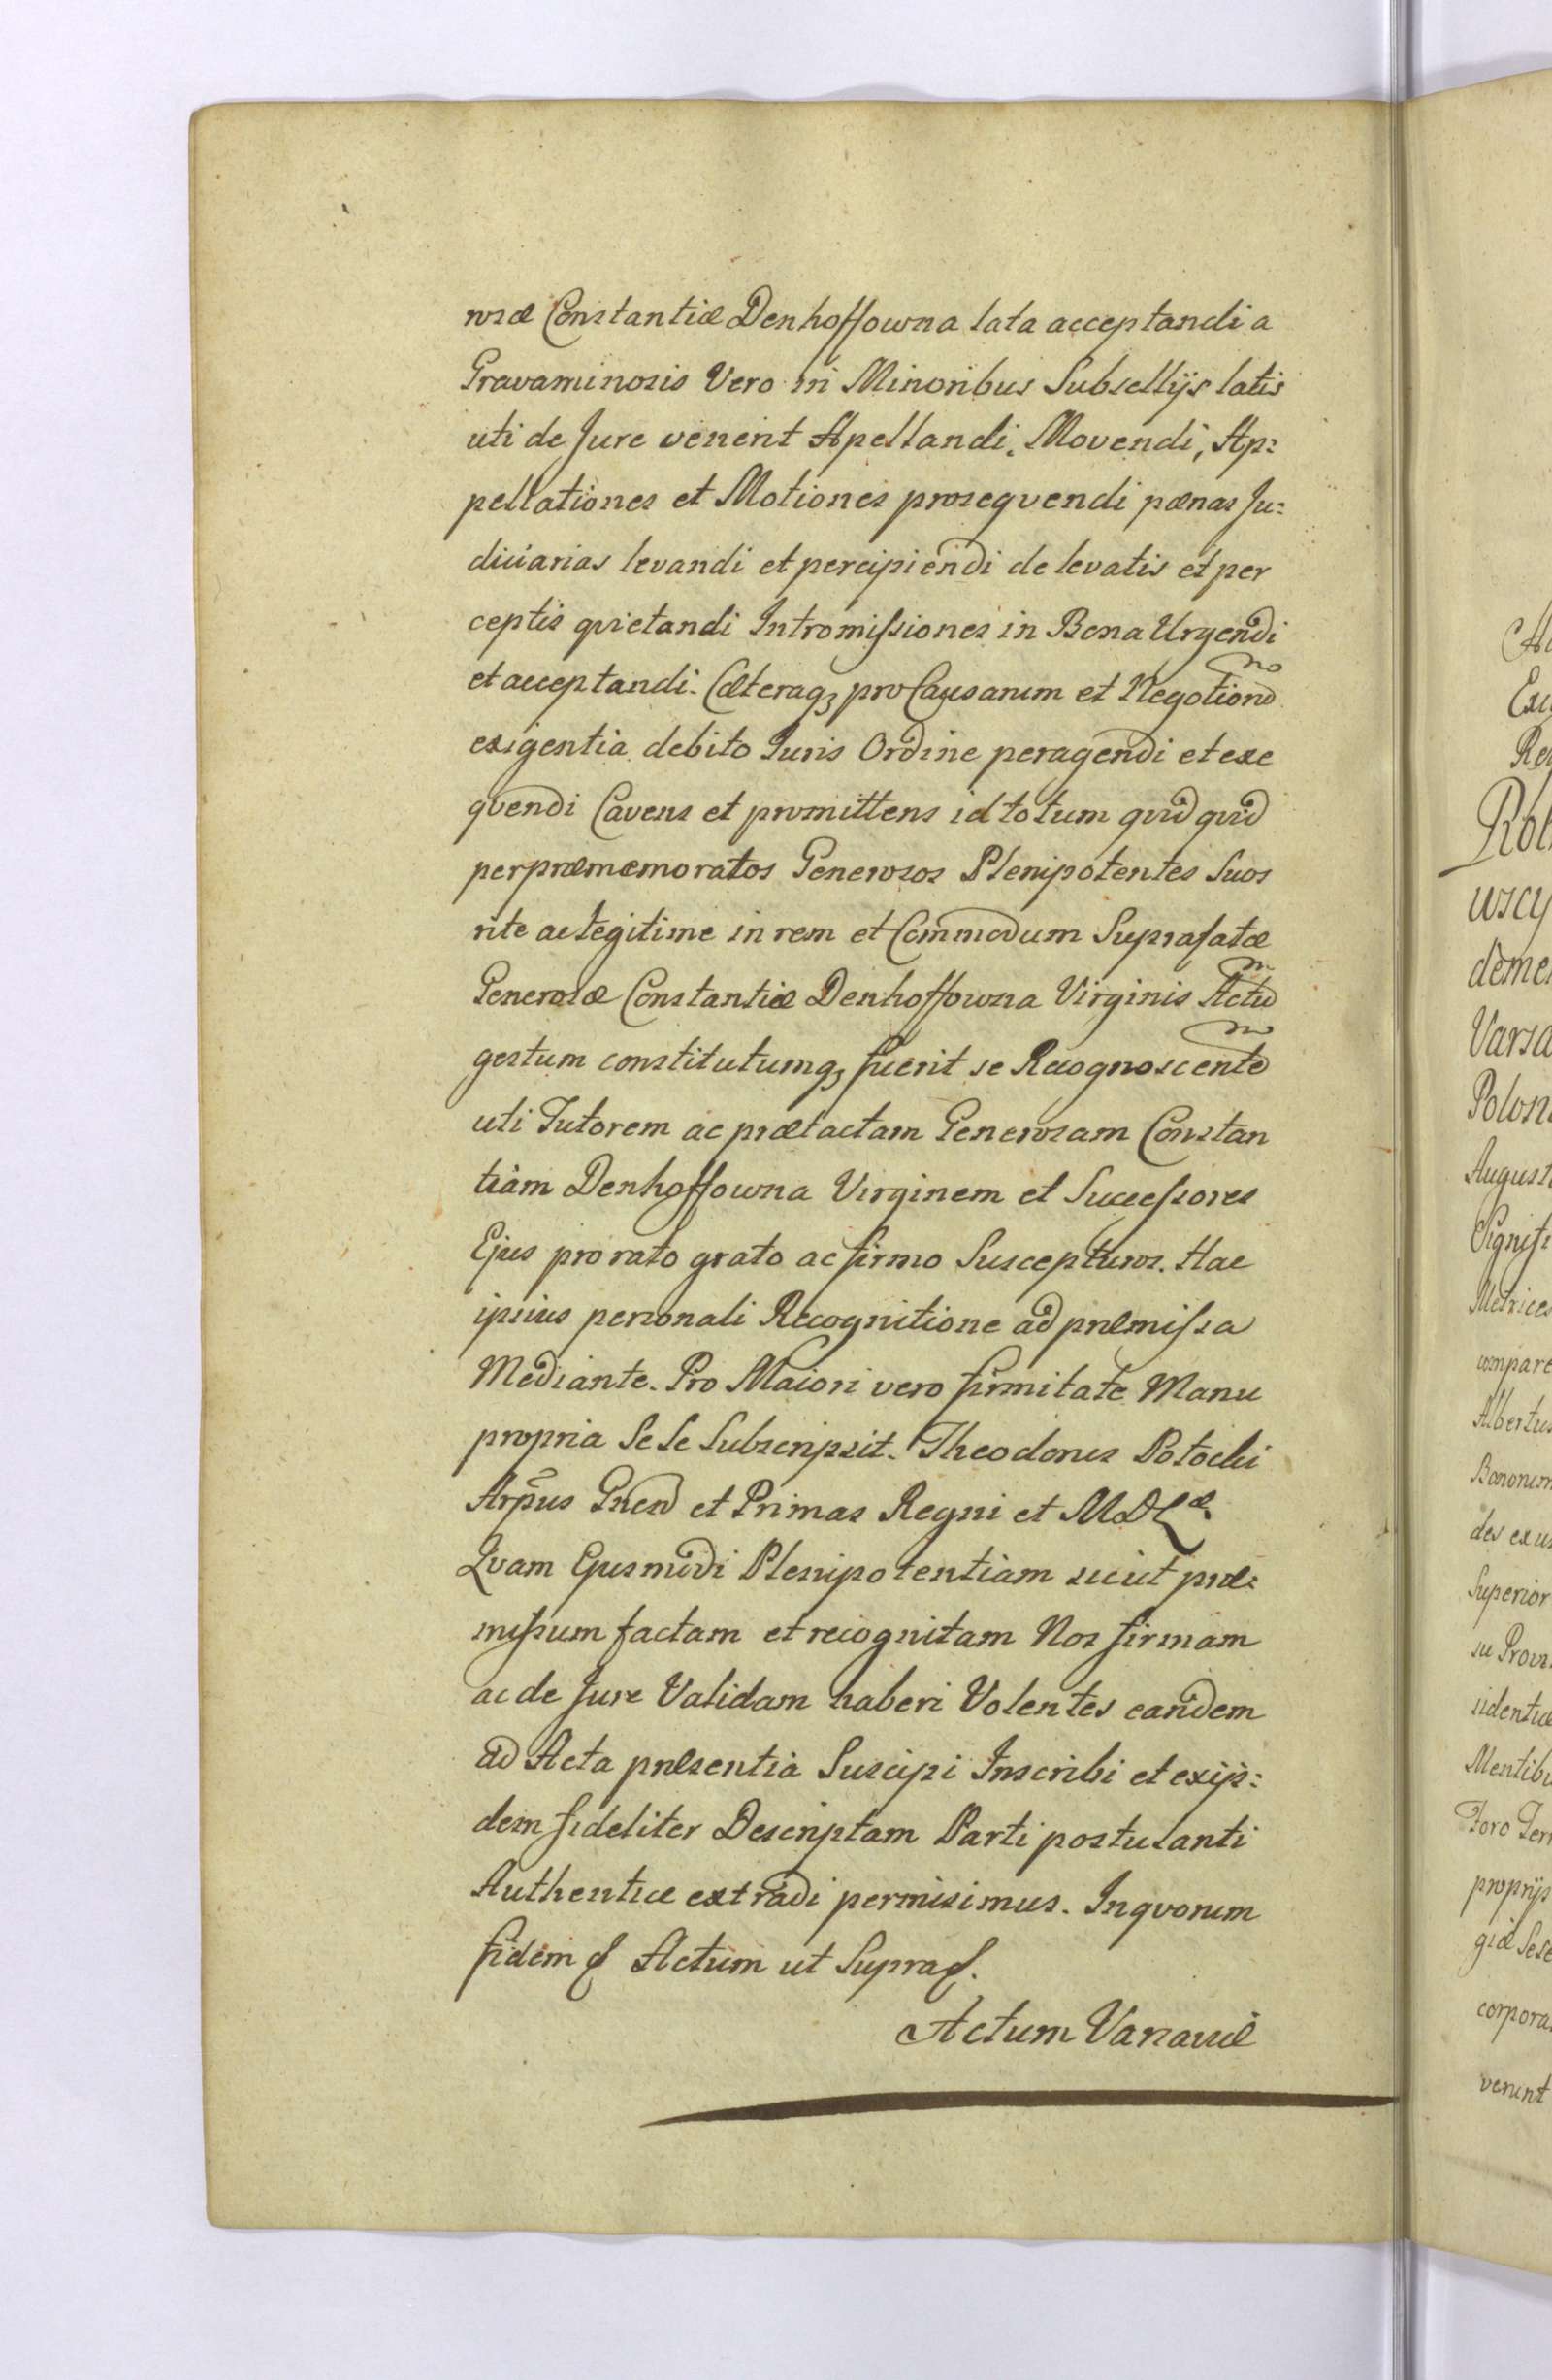 rosæ Constantiæ Denhoffowna lata acceptandi a
Gravaminosis Vero in Minoribus Subsellijs latis
uti de Jure venerit Apellandi, Movendi, Ap:
pellationes et Motiones proseqvendi pænas Ju:
diciarias levandi et percipiendi de levatis et per
ceptis qvietandi Intromissiones in Bona Urgendi
et acceptandi. Cæteraq3 pro Causarum et Negotior̃
exigentia debito Juris Ordine peragendi et exe
qvendi Cavens et promittens id totum qvid qvid
per præmemoratos Generosos Plenipotentes Suos
rite ac legitime in rem et Commodum Suprafatæ
Generosæ Constantiæ Denhoffowna Virginis Actũ
gestum constitutumq3 fuerit se Recognoscentẽ
uti Tutorem ac prætactam Generosam Constan
tiam Denhoffowna Virginem et Successores
Ejus pro rato grato ac firmo Suscepturos. Hac
ipsius personali Recognitione ad præmissa
Mediante. Pro Maiori vero firmitate Manu
propria Se Se Subscripsit. Theodorus Potocki
Arp̃us Gnen̄ et Primas Regni et MDLæ.
Qvam Ejusmodi Plenipotentiam sicut præ:
missum factam et recognitam Nos firmam
ac de Jure Validam haberi Volentes eandem
ad Acta præsentia Suscipi Inscribi et exijs:
dem fideliter Descriptam Parti postulanti
Authentice extradi permisimus. In qvorum
fidem Actum ut Supra.
Actum Varsaviæ
Exc
Rob
uscy
deme
Varsa
Polon
August
Signifi
Metrices
compare
Albertus
Bonorum
des ex us
Superior
su Provi
sidentiæ
Mentibu
Foro Terr
proprijs
giæ Sese
corpora
verunt